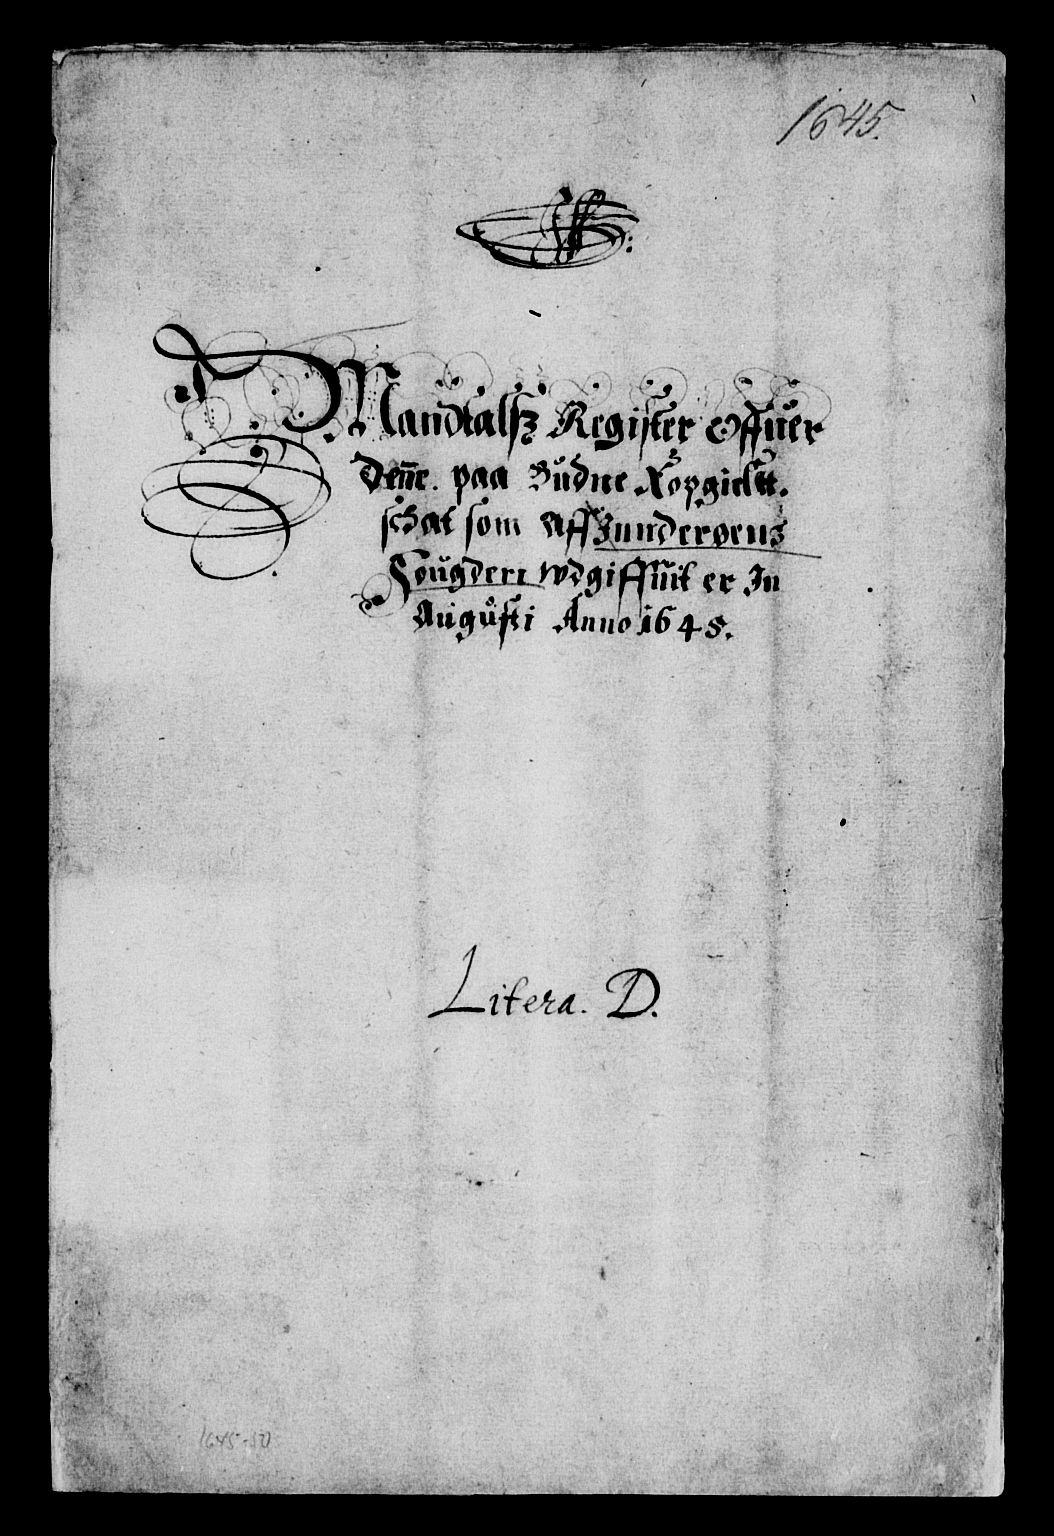 1645.
Mandtalsz Register Offuer
Denne paa Budne Kopgieltt.
schat som Aff Inderøens
Fougderi wdgiffuit er In
Augusti Anno 1645.
Litera. D.
1645-50